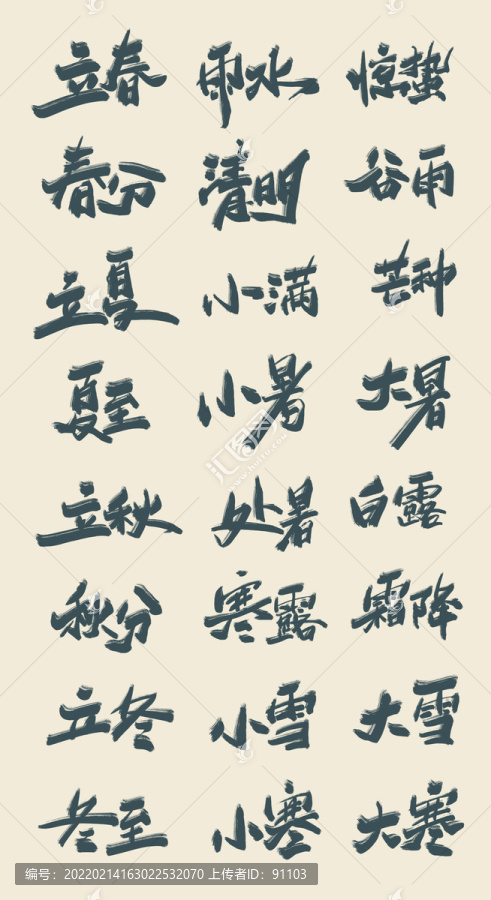 立春 雨水 惊蛰
春分 清明 谷雨
立夏 小满 芒种
夏至 小暑 大暑
立秋 处暑 白露
秋分 寒露 霜降
立冬 小雪 大雪
冬至 小寒 大寒
编号：20220214163022532070 上传者ID：91103